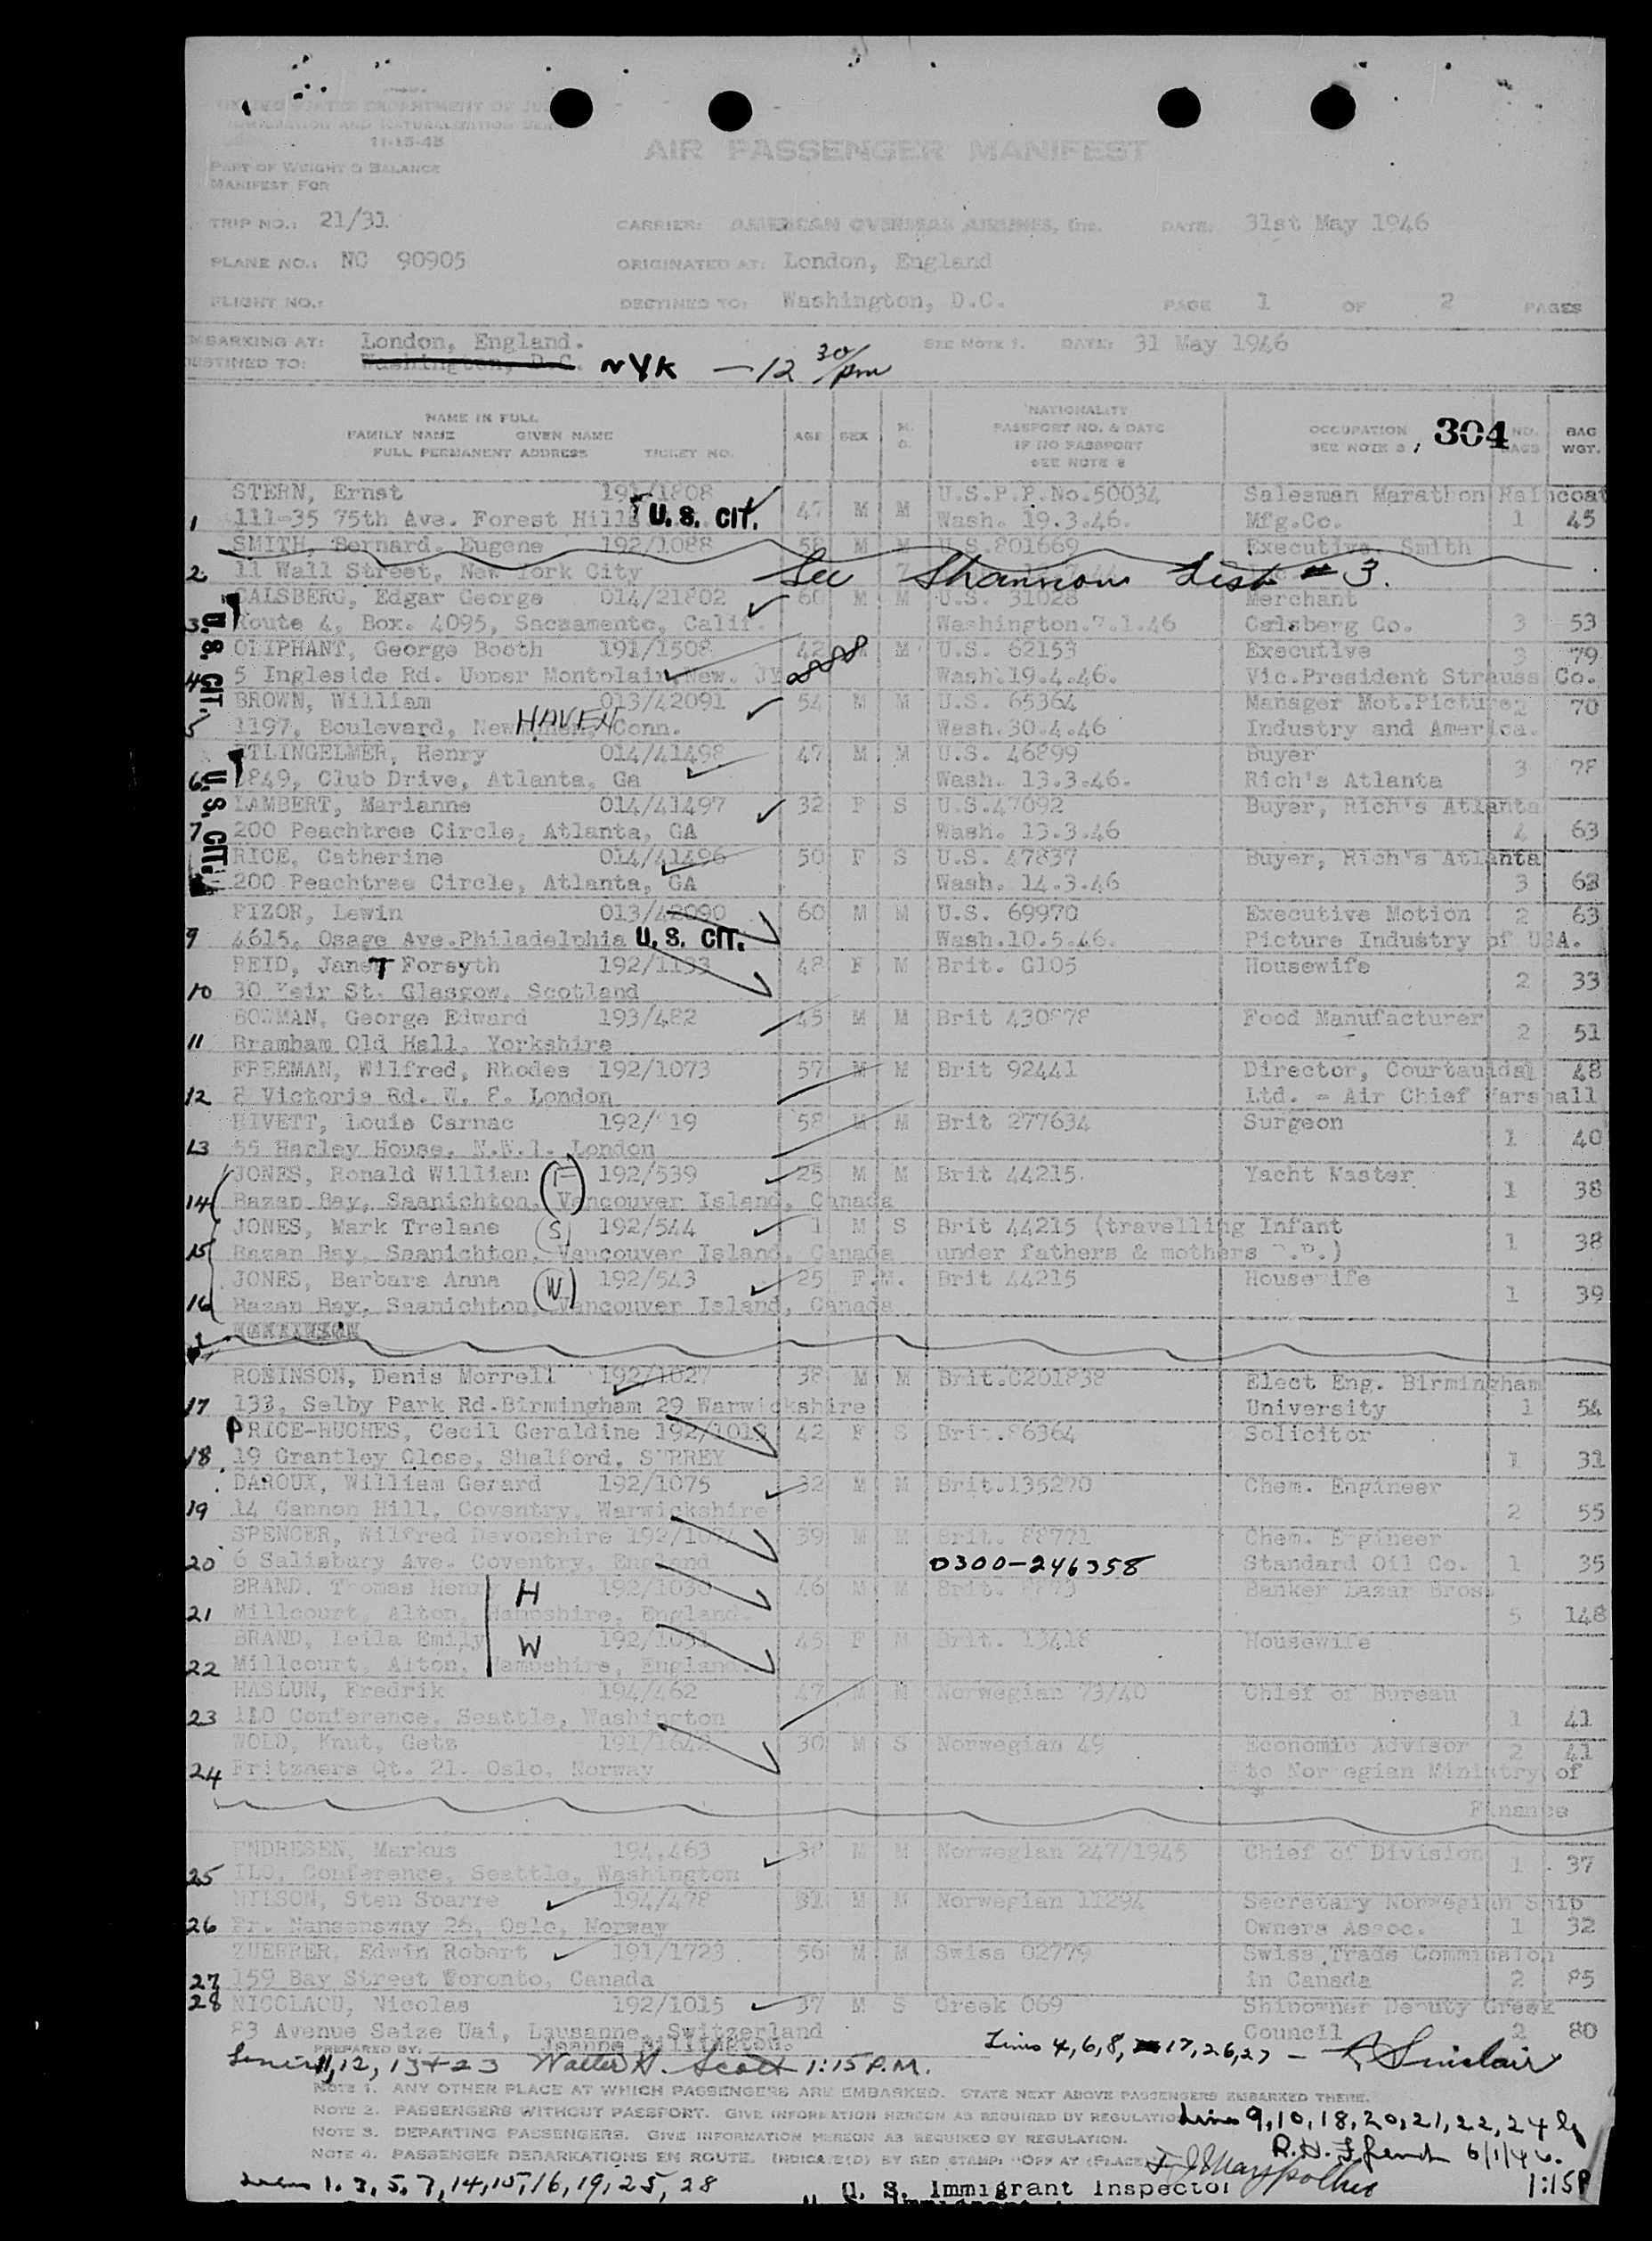 UNITED STATES DEPARTMENT OF
IMMIGRATION AND NATURALIZATION
11-15-45
AIR PASSENGER MANIFEST
PART OF WEIGHT & BALANCE
MANIFEST FOR
TRIP NO.: 21/31 CARRIER: AMERICAN OVERSEAS AIRLINES, Inc. DATE: 31st May 1946
PLANE NO.: NC 90905 ORIGINATED AT: London, England
FLIGHT NO.: DESTINED TO: Washington, D.C. PAGE 1 OF 2 PAGES
EMBARKING AT: London, England. SEE NOTE 1. DATE: 31 May 1946
DESTINED TO: Washington, D.C. NYK — 12 30/pm
NAME IN FULL
FAMILY NAME GIVEN NAME
FULL PERMANENT ADDRESS TICKET NO.
AGE SEX
NATIONALITY
PASSPORT NO. & DATE
IF NO PASSPORT
SEE NOTE
OCCUPATION
SEE NOTE 304 NO. BAGS BAG WGT.
STERN, Ernst 191/1808 M M U.S.P.P.No.50034 Salesman Marathon Raincoat
1 111-35 75th Ave. Forest Hills U. S. CIT. Wash. 19.3.46. Mfg.Co. 1 45
SMITH, Bernard. Eugene 192/1088 58 M M U.S.801669 Executive. Smith
2 11 Wall Street, New York City See Shannon List # 3.
Edgar George 014/21802 60 M M U.S. 31028 Merchant
3 Route 4, Box. 4095, Sacramento, Calif. Washington.7.1.46 Calsberg Co. 3 53
U. S. CIT.
OLIPHANT, George Booth 191/1508 42 M U.S. 62153 Executive 3 79
4 5 Ingleside Rd. Upper Montclair, New. Wash.19.4.46. Vic.President Strauss Co.
BROWN, William 013/42091 54 M M U.S. 65364 Manager Mot.Picture 70
5 1197, Boulevard, New HAVEN Conn. Wash.30.4.46 Industry and America.
Henry 014/41498 47 M M U.S. 46899 Buyer
6 849, Club Drive, Atlanta, Ga Wash. 13.3.46. Rich's Atlanta 3 78
U. S. CIT.
LAMBERT, Marianne 014/41497 32 F S U.S.47092 Buyer, Rich's Atlanta
7 200 Peachtree Circle, Atlanta, GA Wash. 13.3.46 4 63
RICE, Catherine 014/41496 50 F S U.S. 47837 Buyer, Rich's Atlanta
200 Peachtree Circle, Atlanta, GA Wash. 14.3.46 3 63
PIZOR, Lewin 013/42090 60 M M U.S. 69970 Executive Motion 2 63
9 4615, Osage Ave.Philadelphia U. S. CIT. Wash.10.5.46. Picture Industry of USA.
REID, Janet Forsyth 192/1133 48 F M Brit. G105 Housewife
10 30 Keir St. Glasgow, Scotland 2 33
BOWMAN, George Edward 193/482 45 M M Brit 430878 Food Manufacturer
11 Bramham Old Hall, Yorkshire 2 51
FREEMAN, Wilfred, Rhodes 192/1073 57 M M Brit 92441 Director, Courtaulds 1 48
12 8 Victoria Rd. W. 8. London Ltd. - Air Chief Marshall
RIVETT, Louis Carnac 58 M M Brit 277634 Surgeon
13 55 Harley House, N.W.1. London 1 40
JONES, Ronald William 192/539 25 M M Brit 44215. Yacht Master
14 Bazan Bay, Saanichton, Vancouver Island, Canada 1 38
JONES, Mark Trelane (S) 192/544 1 M S Brit 44215 (travelling Infant
15 Bazan Bay, Saanichton, Vancouver Island, Canada under fathers & mothers P.P.) 1 38
JONES, Barbara Anna (W) 192/543 25 F M. Brit 44215 Housewife
16 Bazan Bay, Saanichton, Vancouver Island, Canada 1 39
ROBINSON, Denis Morrell 192/1027 38 M M Brit.C201838 Elect Eng. Birmingham
17 133, Selby Park Rd.Birmingham 29 Warwickshire University 1 54
PRICE-HUGHES, Cecil Geraldine 192/1018 42 F S Brit.86364 Solicitor
18 19 Grantley Close, Shalford, SURREY 1 31
DAROUX, William Gerard 192/1075 32 M M Brit.135270 Chem. Engineer
19 14 Cannon Hill, Coventry, Warwickshire 2 55
SPENCER, Wilfred Devonshire 39 M M Brit. 88771 Chem. Engineer
20 6 Salisbury Ave. Coventry, England 0300-246358 Standard Oil Co. 1 35
BRAND, Thomas Henry H 192/1030 46 M M Brit. Banker Lazar Bros.
21 Millcourt, Alton, Hampshire, England. 5 148
BRAND, Leila Emily W 192/1031 45 F M Brit. 13418 Housewife
22 Millcourt, Alton, Hampshire, England.
HASLUN, Fredrik 194/462 47 M M Norwegian 73/40 Chief of Bureau
23 ILO Conference, Seattle, Washington 1 41
WOLD, Knut, Getz 191/1642 30 M S Norwegian 49 Economic Advisor 2 41
24 Fritzners Qt. 21. Oslo, Norway to Norwegian Ministry of
Finance
ENDRESEN, Markus 194.463 38 M M Norwegian 247/1945 Chief of Division
25 ILO, Conference, Seattle, Washington 1 37
NILSON, Sten Sparre 194/478 31 M M Norwegian 11294 Secretary Norwegian Ship
26 Fr. Nansensway 26, Oslo, Norway Owners Assoc. 1 32
ZUERRER, Edwin Robert 191/1723 56 M M Swiss 02779 Swiss Trade Commission
27 159 Bay Street Toronto, Canada in Canada 2 85
28 NICOLAOU, Nicolas 192/1015 37 M S Greek 069 Shipowner Deputy Greek
83 Avenue Seize Uai, Lausanne, Switzerland Council 2 80
PREPARED BY:
Lines 11, 12, 13 + 23 Walter H. Scott 1:15 P.M. Lines 4, 6, 8, 17, 26, 27 — Sinclair
NOTE 1. ANY OTHER PLACE AT WHICH PASSENGERS ARE EMBARKED. STATE NEXT ABOVE PASSENGERS EMBARKED THERE.
NOTE 2. PASSENGERS WITHOUT PASSPORT. GIVE INFORMATION HEREON AS REQUIRED BY REGULATION
Lines 9, 10, 18, 20, 21, 22, 24 by
NOTE 3. DEPARTING PASSENGERS. GIVE INFORMATION HEREON AS REQUIRED BY REGULATION.
R.H. French 6/1/46.
NOTE 4. PASSENGER DEBARKATIONS EN ROUTE. INDICATE(D) BY RED STAMP: "OFF AT (PLACE)
1:15P
Lines 1, 3, 5, 7, 14, 15, 16, 19, 25, 28 U. S. Immigrant Inspector